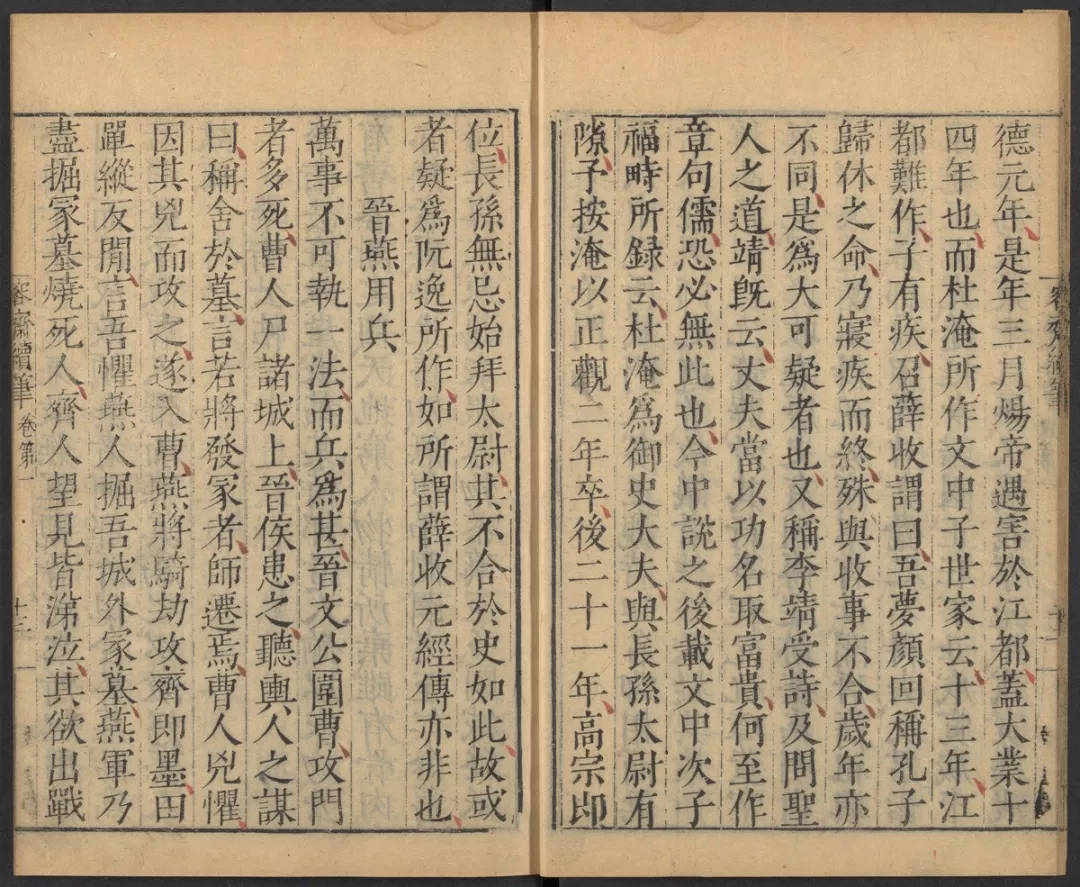 德元年是年三月煬帝遇害於江都蓋大業十
四年也而杜淹所作文中子世家云十三年江
都難作子有疾召薛收謂曰吾夢顏回稱孔子
歸休之命乃寢疾而終殊與收事不合歲年亦
不同是爲大可疑者也又稱李靖受詩及問聖
人之道靖旣云丈夫當以功名取富貴何至作
章句儒恐必無此也今中説之後載文中次子
福畤所録云杜淹爲御史大夫與長孫太尉有
隙予按淹以正觀二年卒後二十一年高宗即
位長孫無忌始拜太尉其不合於史如此故或
者疑爲阮逸所作如所謂薛收元經傳亦非也
晉燕用兵
萬事不可執一法而兵爲甚晉文公圍曹攻門
者多死曹人尸諸城上晉侯患之聽輿人之謀
曰稱舍於墓言若將發冢者師遷焉曹人兇懼
因其兇而攻之遂入曹燕將騎劫攻齊即墨田
單縱反閒言吾懼燕人掘吾城外冢墓燕軍乃
盡掘冢墓燒死人齊人望見皆涕泣其欲出戰
容齋續筆 卷第一
十二